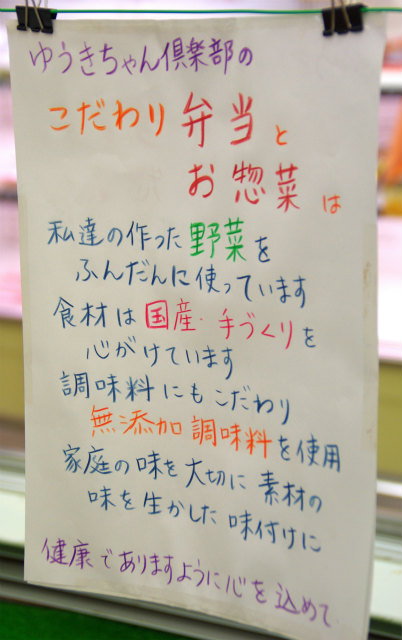 ゆうきちゃん倶楽部の
こだわり弁当と
お惣菜は
私達の作った野菜を
ふんだんに使っています
食材は国産・手づくりを
心がけています
調味料にもこだわり
無添加調味料を使用
家庭の味を大切に素材の
味を生かした味付けに
健康でありますように心を込めて